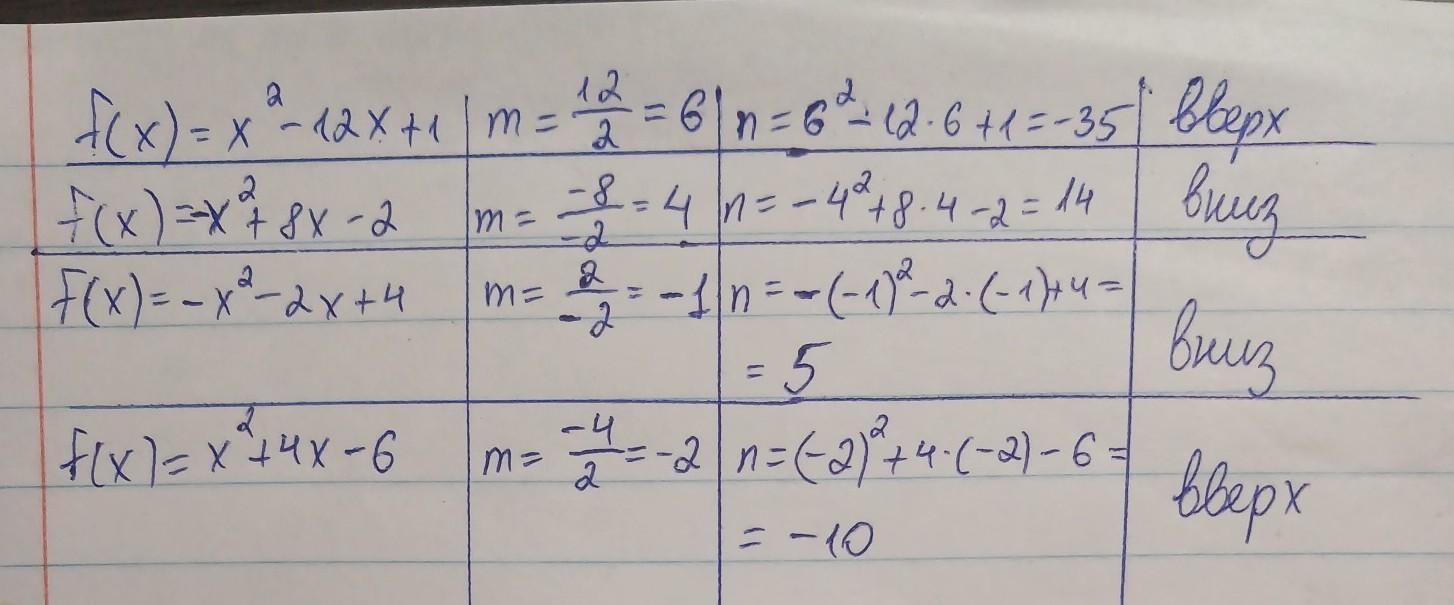 f(x) = x² - 12x + 1 | m = 12/2 = 6 | n = 6² - 12·6 + 1 = -35 | вверх
f(x) = -x² + 8x - 2 | m = -8/-2 = 4 | n = -4² + 8·4 - 2 = 14 | вниз
f(x) = -x² - 2x + 4 | m = 2/-2 = -1 | n = -(-1)² - 2·(-1) + 4 =
= 5 | вниз
f(x) = x² + 4x - 6 | m = -4/2 = -2 | n = (-2)² + 4·(-2) - 6 =
= -10 | вверх